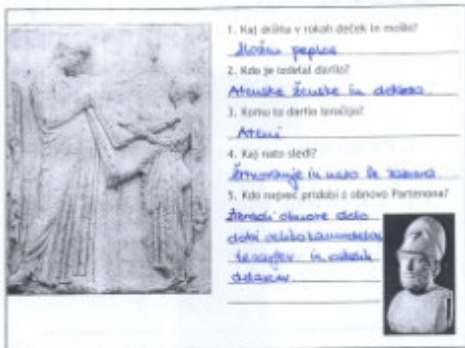 1. Kaj držita v rokah deček in moški?
peplos
2. Kdo je izdelal darilo?
Atenske ženske in dekleta
3. Komu to darilo izročijo?
Ateni
4. Kaj nato sledi?
Žrtvovanje in
5. Kdo največ pridobi z obnovo Partenona?
Zaradi obnove delo
dobi veliko kamnosekov
in ostalih
delavcev.